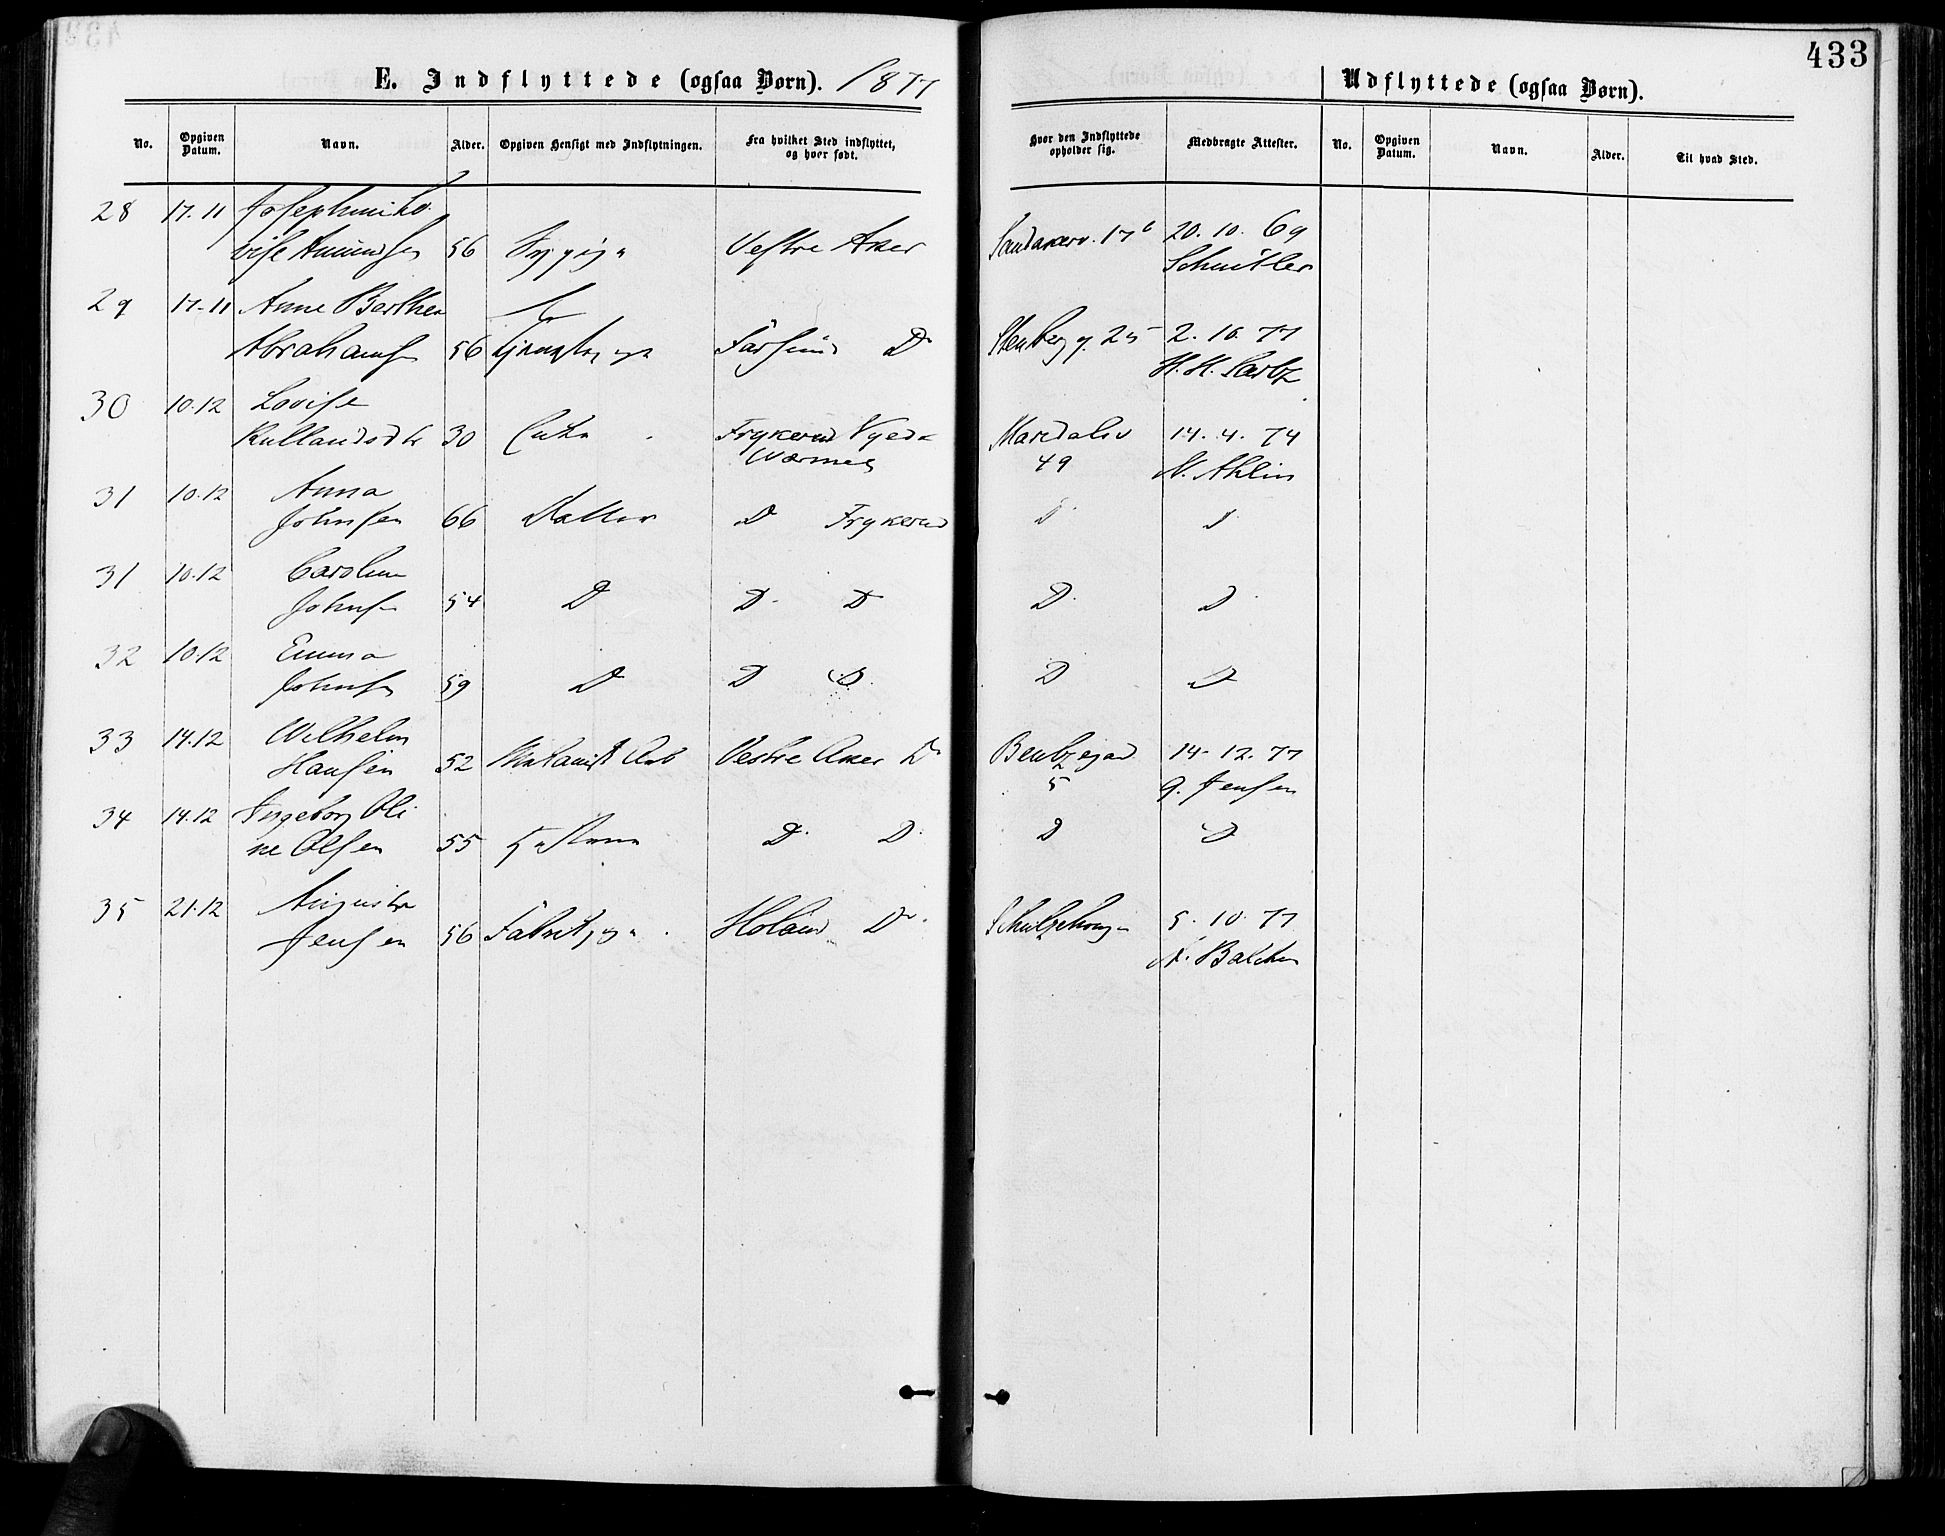 433
E. Indflyttede (ogsaa Børn). 1877
Udflyttede (ogsaa Børn).
No. Opgiven Datum. Navn. Alder. Opgiven Hensigt med Indflytningen. Fra hvilket Sted indflyttet, og hvor født.
Hvor den Indflyttede opholder sig. Medbragte Attester. No. Opgiven Datum. Navn. Alder. Til hvad Sted.
28 17.11 Josephine Lo
vise Amundsen 56 Vestre Aker 17 b 20. 10. 69
29 17-11 Anne Berthea
Abrahams 56 Farsund D Stenberg g. 25 2. 10. 77
H. H.
30 10.12 Lovise
Rullandsdtr 30 Enke Frykerud Nyed Maridalsv 14. 4. 74
Wærmel 49 N. Ahlin
31 10.12 Anna
Johnsen 66 Datter D Frykerud D D
31 10.12 Caroline
Johnsen 54 D D D D D
32 10.12 Emma
Johnsen 59 D D D D D
33 14.12 Wilhelm
Hansen 52 Vestre Aker D 14-12.77
5 G. Jensen
34 14.12 Ingeborg Oli
ne Olsen 55 Hustru D D D D
35 21.12 Auguste
Jensen 56 Høland D 5. 10. 77
N. Balchen